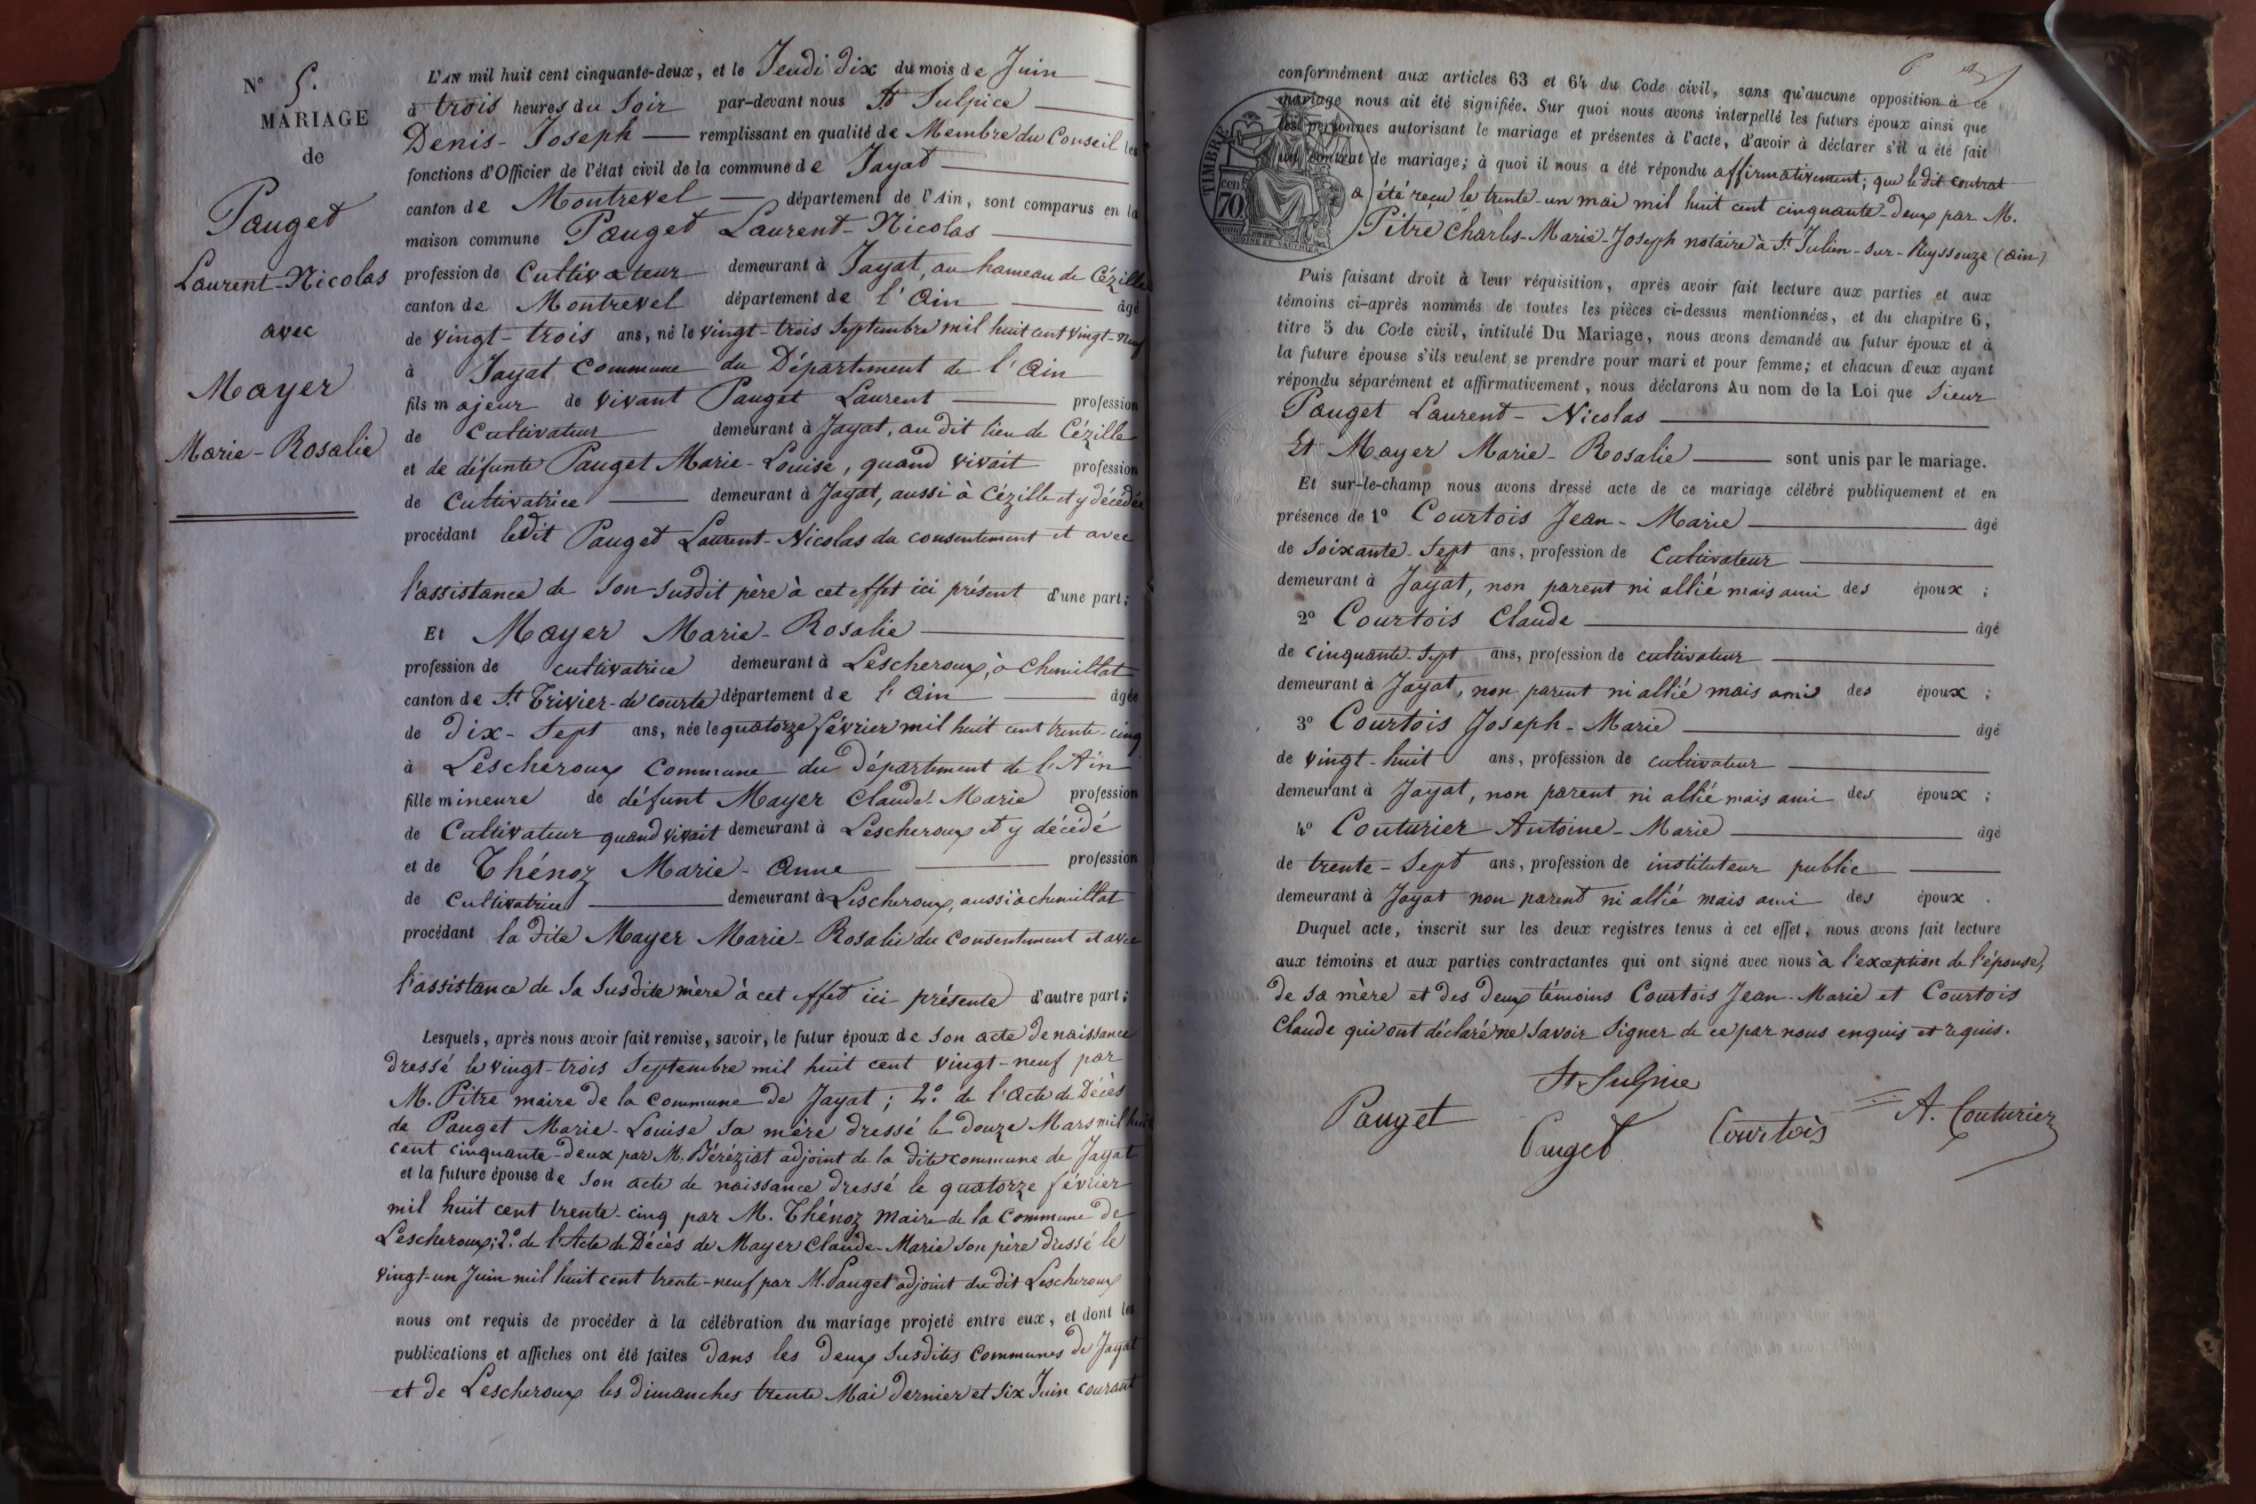 N° 5.
MARIAGE
de
Pauget
Laurent-Nicolas
avec
Mayer
Marie-Rosalie
L'AN mil huit cent cinquante-deux, et le Jeudi dix du mois de Juin
à trois heures du Soir par-devant nous St Sulpice
Denis-Joseph remplissant en qualité de Membre du Conseil les
fonctions d'Officier de l'état civil de la commune de Jayat
canton de Montrevel département de l'Ain, sont comparus en la
maison commune Pauget Laurent-Nicolas
profession de Cultivateur demeurant à Jayat, au hameau de Cézille
canton de Montrevel département de l'Ain âgé
de vingt-trois ans, né le vingt-trois Septembre mil huit cent vingt-neuf
à Jayat Commune du Département de l'Ain
fils majeur de vivant Pauget Laurent profession
de Cultivateur demeurant à Jayat, au dit lieu de Cézille
et de défunte Pauget Marie-Louise, quand vivait profession
de Cultivatrice demeurant à Jayat, aussi à Cézille et y décédée
procédant ledit Pauget Laurent-Nicolas du consentement et avec
l'assistance de son susdit père à cet effet ici présent d'une part;
Et Mayer Marie-Rosalie
profession de cultivatrice demeurant à Lescheroux, à Chemillat
canton de St Trivier-de-courte département de l'Ain âgée
de dix-Sept ans, née le quatorze février mil huit cent trente-cinq
à Lescheroux Commune du Département de l'Ain
fille mineure de défunt Mayer Claude-Marie profession
de Cultivateur quand vivait demeurant à Lescheroux et y décédé
et de Thénoz Marie-Anne profession
de Cultivatrice demeurant à Lescheroux, aussi à chemillat
procédant la dite Mayer Marie-Rosalie du Consentement et avec
l'assistance de sa susdite mère à cet effet ici présente d'autre part;
Lesquels, après nous avoir fait remise, savoir, le futur époux de son acte de naissance
dressé le vingt-trois Septembre mil huit cent vingt-neuf par
M. Pitre maire de la Commune de Jayat; 2° de l'Acte de Décès
de Pauget Marie-Louise sa mère dressé le douze Mars mil huit
cent cinquante-deux par M. Béréziat adjoint de la dite commune de Jayat
et la future épouse de son acte de naissance dressé le quatorze février
mil huit cent trente-cinq par M. Thénoz Maire de la Commune de
Lescheroux; 2° de l'Acte de Décès de Mayer Claude-Marie son père dressé le
vingt-un Juin mil huit cent trente-neuf par M. Pauget adjoint du dit Lescheroux
nous ont requis de procéder à la célébration du mariage projeté entre eux, et dont les
publications et affiches ont été faites dans les deux susdites Communes de Jayat
et de Lescheroux les dimanches trente Mai dernier et six Juin courant
6
conformément aux articles 63 et 64 du Code civil, sans qu'aucune opposition à ce
mariage nous ait été signifiée. Sur quoi nous avons interpellé les futurs époux ainsi que
les personnes autorisant le mariage et présentes à l'acte, d'avoir à déclarer s'il a été fait
un contrat de mariage; à quoi il nous a été répondu affirmativement; que le dit contrat
a été reçu le trente-un mai mil huit cent cinquante-deux par M.
Pitre Charles-Marie-Joseph notaire à St Julien-sur-Reyssouze (Ain)
TIMBRE
70 cen
Puis faisant droit à leur réquisition, après avoir fait lecture aux parties et aux
témoins ci-après nommés de toutes les pièces ci-dessus mentionnées, et du chapitre 6,
titre 5 du Code civil, intitulé Du Mariage, nous avons demandé au futur époux et à
la future épouse s'ils veulent se prendre pour mari et pour femme; et chacun d'eux ayant
répondu séparément et affirmativement, nous déclarons Au nom de la Loi que Sieur
Pauget Laurent-Nicolas
Et Mayer Marie-Rosalie sont unis par le mariage.
Et sur-le-champ nous avons dressé acte de ce mariage célébré publiquement et en
présence de 1° Courtois Jean-Marie âgé
de soixante-Sept ans, profession de Cultivateur
demeurant à Jayat, non parent ni allié mais ami des époux;
2° Courtois Claude âgé
de cinquante-Sept ans, profession de cultivateur
demeurant à Jayat, non parent ni allié mais ami des époux;
3° Courtois Joseph-Marie âgé
de vingt-huit ans, profession de cultivateur
demeurant à Jayat, non parent ni allié mais ami des époux;
4° Couturier Antoine-Marie âgé
de trente-Sept ans, profession de instituteur public
demeurant à Jayat non parent ni allié mais ami des époux.
Duquel acte, inscrit sur les deux registres tenus à cet effet, nous avons fait lecture
aux témoins et aux parties contractantes qui ont signé avec nous à l'exception de l'épouse,
de sa mère et des deux témoins Courtois Jean-Marie et Courtois
Claude qui ont déclaré ne savoir signer de ce par nous enquis et requis.
St Sulpice
Pauget
Pauget
Courtois
A. Couturier